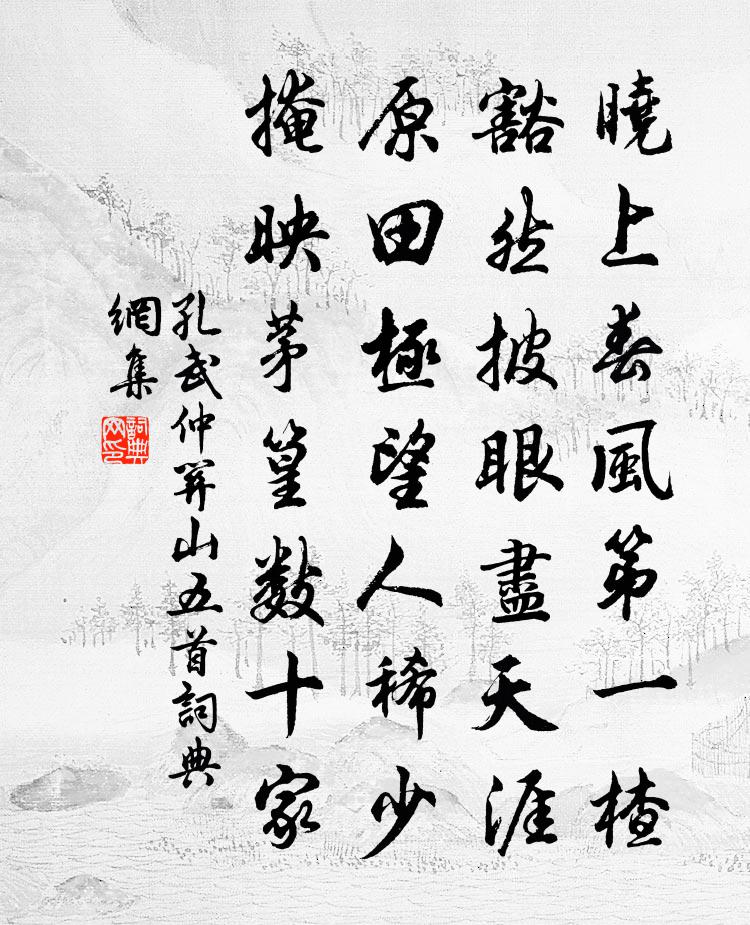 曉上春風第一楂
豁然披眼盡天涯
原田極望人稀少
掩映茅篁數十家
孔武仲羿山五首詞典
網集
詞典
网印